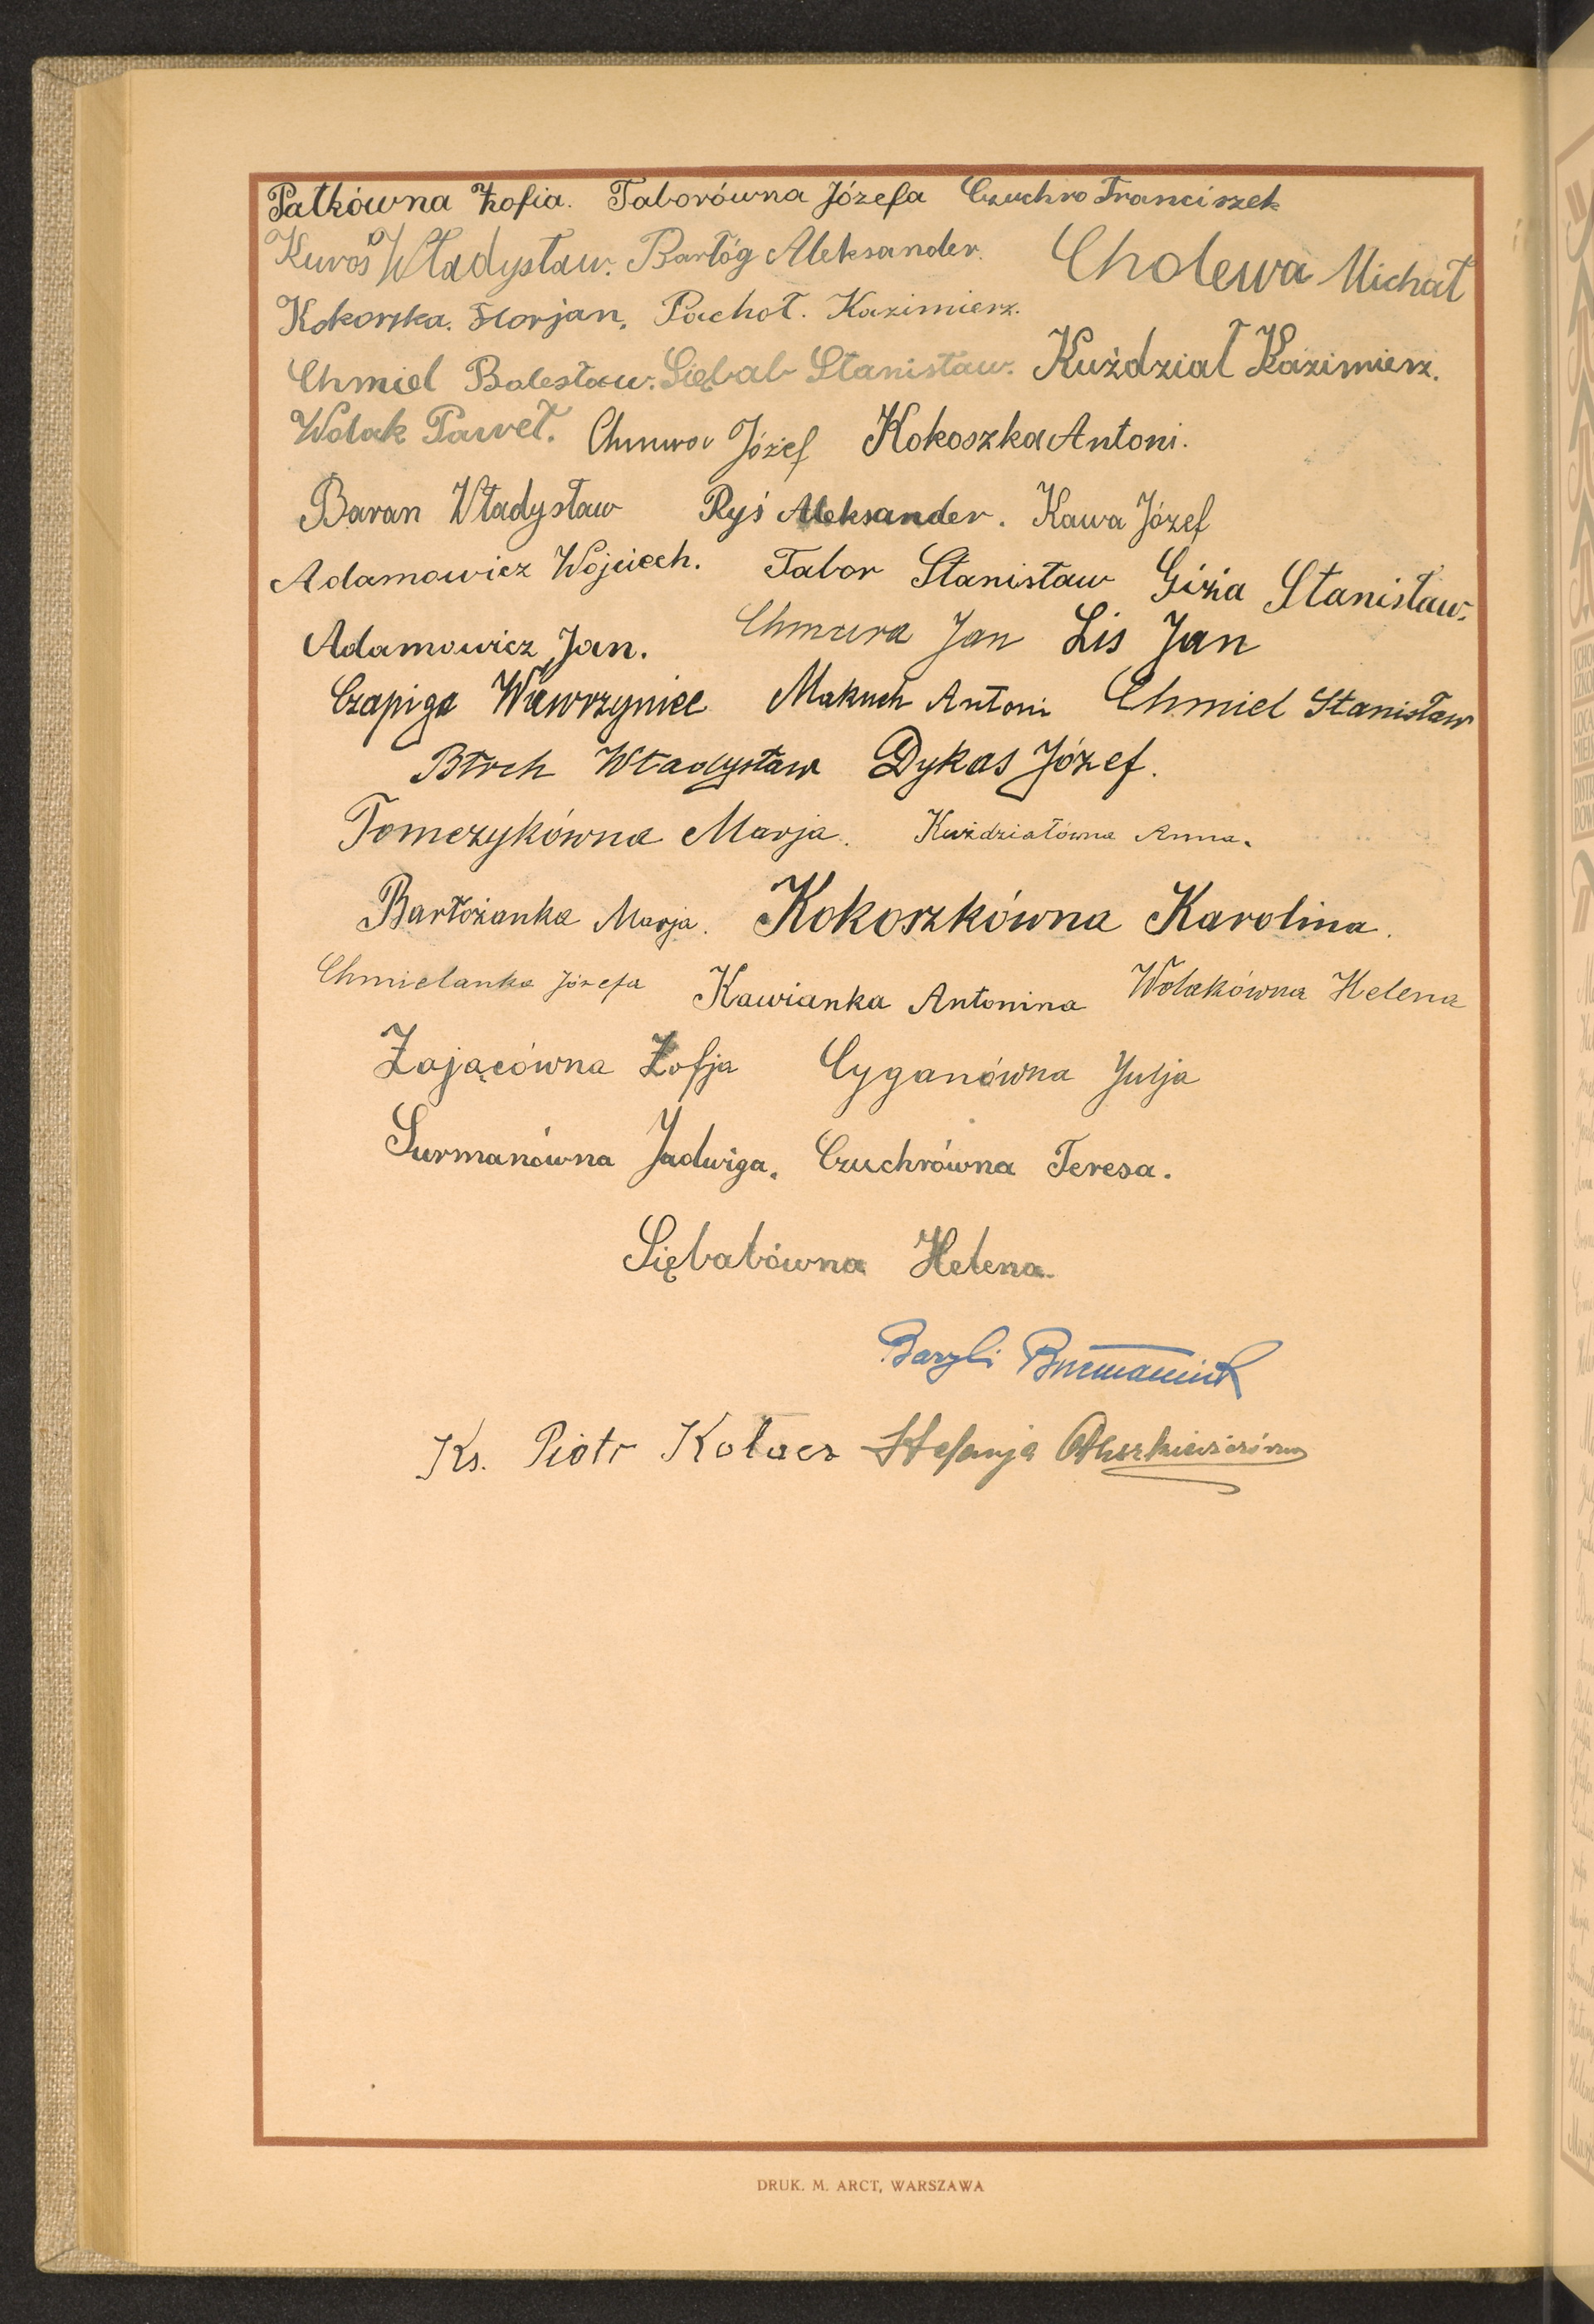 Patkówna Zofia. Taborówna Józefa Czuchro Franciszek
Kuroś Władysław. Bartóg Aleksander. Cholewa Michał
Kokoszka. Florjan. Pachoł. Kazimierz.
Chmiel Bolesław. Siębab Stanisław. Kuździał Kazimierz.
Wolak Paweł. Chmura Józef Kokoszka Antoni.
Baran Władysław Ryś Aleksander. Kawa Józef
Adamowicz Wojciech. Tabor Stanisław Giża Stanisław.
Adamowicz Jan. Chmura Jan Lis Jan
Czapiga Wawrzyniec Makuch Antoni Chmiel Stanisław
Władysław Dykas Józef.
Tomczykówna Marja. Kuździałówna Anna.
Bartożanka Marja. Kokoszkówna Karolina.
Chmielanka Józefa Kawianka Antonina Wolakówna Helena
Zającówna Zofja Cyganówna Julja
Surmanówna Jadwiga. Czuchrówna Teresa.
Siębabówna Helena.
Bazyli
Ks. Piotr Kołacz Stefanja
DRUK. M. ARCT, WARSZAWA